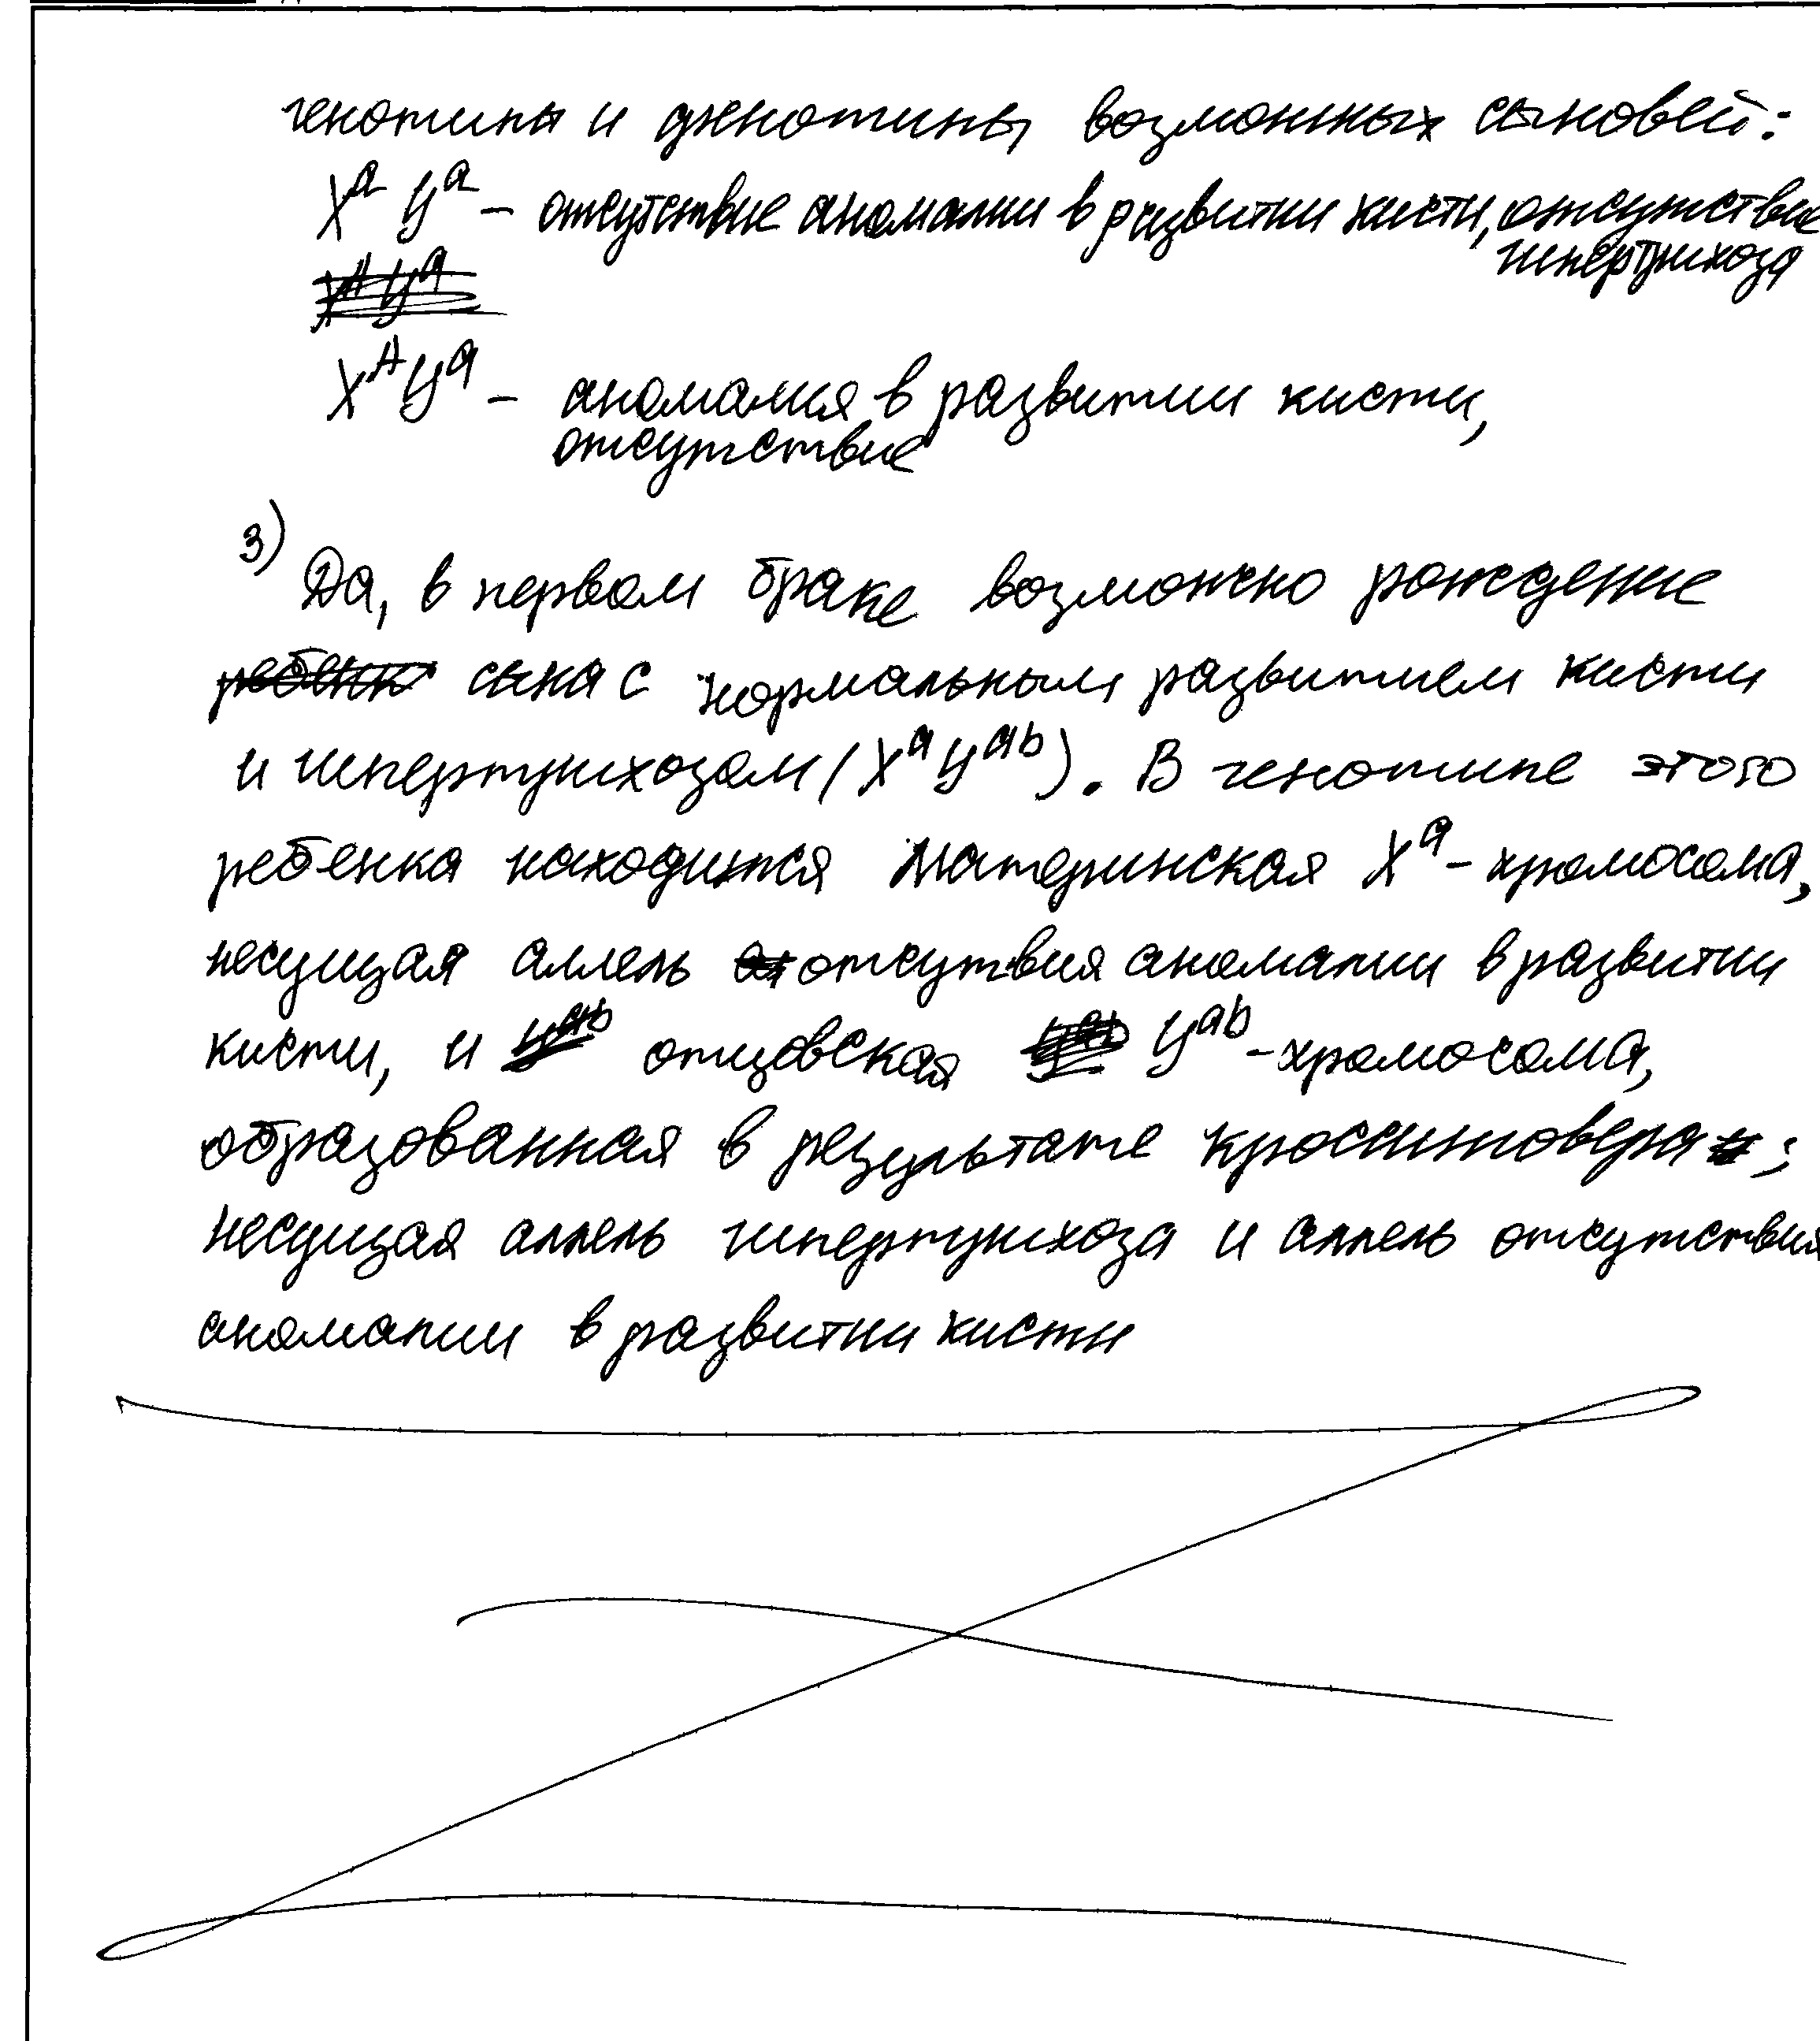 генотипы и фенотипы возможных сыновей:
Xᵃ Yᵃ – отсутствие аномалии в развитии кисти, отсутствие
гипертрихоза
Xᴬ Yᵃ
Xᴬ Yᵃ – аномалия в развитии кисти,
отсутствие
3)
Да, в первом браке возможно рождение
ребёнк сына с нормальным развитием кисти
и гипертрихозом (Xᵃ Yᵃᵇ). В генотипе этого
ребенка находится материнская Xᵃ - хромосома,
несущая аллель отсутвия аномалии в развитии
кисти, и Yᵃᵇ отцовская Yᵃᵇ Yᵃᵇ -хромосома,
образованная в результате кроссинговера;
несущая аллель гипертрихоза и аллель отсутствия
аномалии в развитии кисти